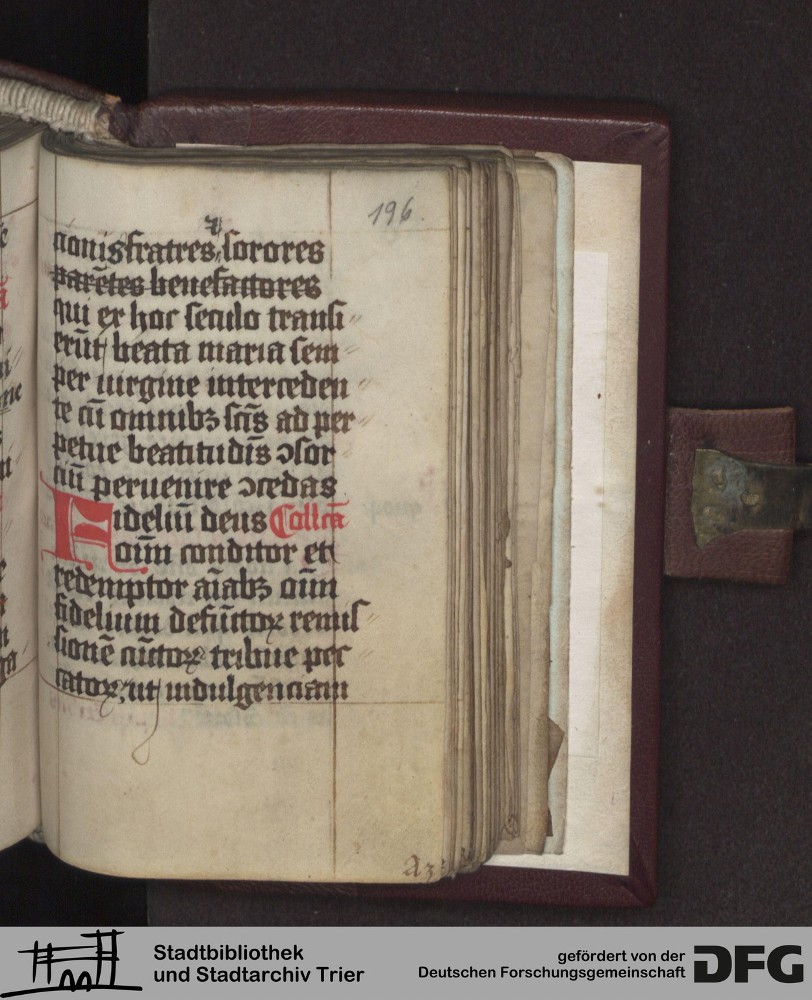 196.
cionis fratres ⁊ sorores
parētes benefactores
qui ex hoc seculo transi
erūt beata maria sem
per uirgine interceden
te cū omnibꝫ scīs ad per
petue beatitudīs ↄsor
ciū peruenire ↄcedas
Fideliū deus Collcā
oīm conditor et
redemptor aīabꝫ oīm
fidelium defūctoꝝ remis
sionē cūctoꝝ tribue pec
catoꝝ, ut indulgenciam
Stadtbibliothek
und Stadtarchiv Trier
gefördert von der
Deutschen Forschungsgemeinschaft
DFG